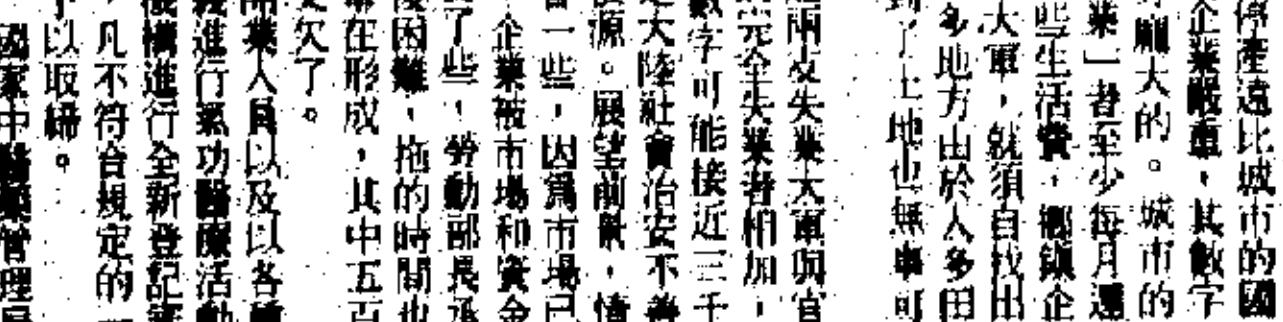 停產遠比城市的國
企業嚴重，其數字
龐大的。城市的
業」者至少每月還
些生活費，鄉鎮企
大軍，就須自找出
多地方由於人多田
了土地也無事可
兩支失業大軍與官
完全失業者相加，
數字可能接近三千
大陸社會治安不善
源。展望前景，情
一些，因為市場已
企業被市場和資金
了些，勞動部長承
困難，拖的時間也
在形成，其中五百
欠了。
業人員以及以各種
進行氣功醫療活動
機構進行全新登記審
凡不符合規定的
予以取締。
國家中醫藥管理局